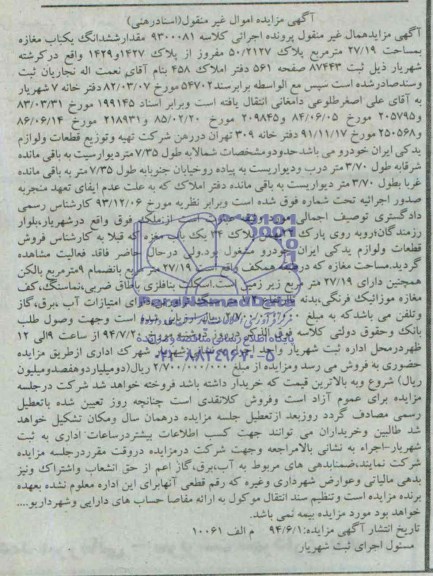 آگهی مزایده اموال غیر منقول(اسنادرهنی)
آگهی مزایده مال غیر منقول پرونده اجرائی کلاسه ۹۳۰۰۰۸۱ مقدار ششدانگ یکباب مغازه
بمساحت ۲۷/۱۹ مترمربع پلاک ۵۰/۲۱۲۷ مفروز از پلاک ۱۴۲۷و۱۴۲۹ واقع درکرشته
شهریار ذیل ثبت ۸۷۴۴۳ صفحه ۵۶۱ دفتر املاک ۴۵۸ بنام آقای نعمت اله نجاریان ثبت
وسندصادرشده است سپس مع الواسطه برابرسند۵۴۷۰۲مورخ ۸۲/۰۳/۰۷ دفتر خانه ۷ شهریار
به آقای علی اصغرطلوعی دامغانی انتقال یافته است وبرابر اسناد ۱۹۹۱۴۵ مورخ ۸۳/۰۳/۳۱
و۲۰۵۷۹۵ مورخ ۸۴/۰۶/۰۵ و۲۰۹۸۴۵ مورخ ۸۵/۰۲/۲۰ و۲۱۸۹۳۱ مورخ ۸۶/۰۶/۱۴
و۲۵۰۵۶۸ مورخ ۹۱/۱۱/۱۷ دفتر خانه ۳۰۹ تهران دررهن شرکت تهیه وتوزیع قطعات ولوازم
یدکی ایران خودرو می باشد حدودومشخصات شمالابه طول ۷/۳۵متردیواریست به باقی مانده
شرقابه طول ۳/۷۰ متر درب ودیواریست به پیاده روخیابان جنوبابه طول ۷/۳۵متر به باقی مانده
غربا بطول ۳/۷۰ متر دیواریست به باقی مانده دفتر املاک که به علت عدم ایفای تعهد منجربه
صدور اجرائیه تحت شماره فوق شده است وبرابر نظریه مورخ ۹۳/۱۲/۰۶ کارشناس رسمی
دادگستری توصیف اجمالی ملک فوق واقع درشهریار،بلوار
رزمندگان،روبه روی پارک پلاک ۳۴ یک باب مغازه که قبلا به کارشناس فروش
قطعات ولوازم یدکی ایران خودرو مشغول بود.ولی درحال حاضر فاقد فعالیت مشاهده
گردید.مساحت مغازه که درطبقه همکف ۲۷/۱۹ بانضمام ۹مترمربع بالکن
همچنین دارای ۲۷/۱۹ متر مربع زیر زمین است.اسکلت بنافلزی باطاق ضربی،نماسنگ،کف
مغازه موزائیک فرنگی،بدنه دارای امتیازات آب ،برق،گاز
وتلفن می باشدکه به مبلغ ریال ارزیابی شده است وجهت وصول طلب
بانک وحقوق دولتی کلاسه فوق الذکر ۹۴/۷/۲ از ساعت ۹الی ۱۲
ظهردرمحل اداره ثبت شهریار واحد شهریار شهرک اداری ازطریق مزایده
حضوری به فروش می رسد ومزایده از مبلغ ۲/۷۰۰/۰۰۰/۰۰۰ ریال(دومیلیاردوهفصدومیلیون
ریال) شروع وبه بالاترین قیمت که خریدار داشته باشد فروخته خواهد شد شرکت درجلسه
مزایده برای عموم آزاد است وفروش کلانقدی است چنانچه روز تعیین شده باتعطیل
رسمی مصادف گردد روزبعد ازتعطیل جلسه مزایده درهمان سال ومکان تشکیل خواهد
شد طالبین وخریداران می توانند جهت کسب اطلاعات بیشتردرساعات اداری به ثبت
شهریار-اجراء به نشانی بالامراجعه وجهت شرکت درمزایده دروقت مقرردرجلسه مزایده
شرکت نمایند،ضمنابدهی های مربوط به آب،برق،گاز اعم از حق انشعاب واشتراک ونیز
بدهی مالیاتی وعوارض شهرداری وغیره که رقم قطعی آنهابرای این اداره معلوم نشده بعهده
برنده مزایده است وتنظیم سند انتقال موکول به ارائه مفاصا حساب های دارایی وشهرداریو....
خواهد بود مورد مزایده بیمه نمی باشد.
تاریخ انتشار آگهی مزایده:۹۴/۶/۱ م الف ۱۰۰۶۱
مسئول اجرای ثبت شهریار